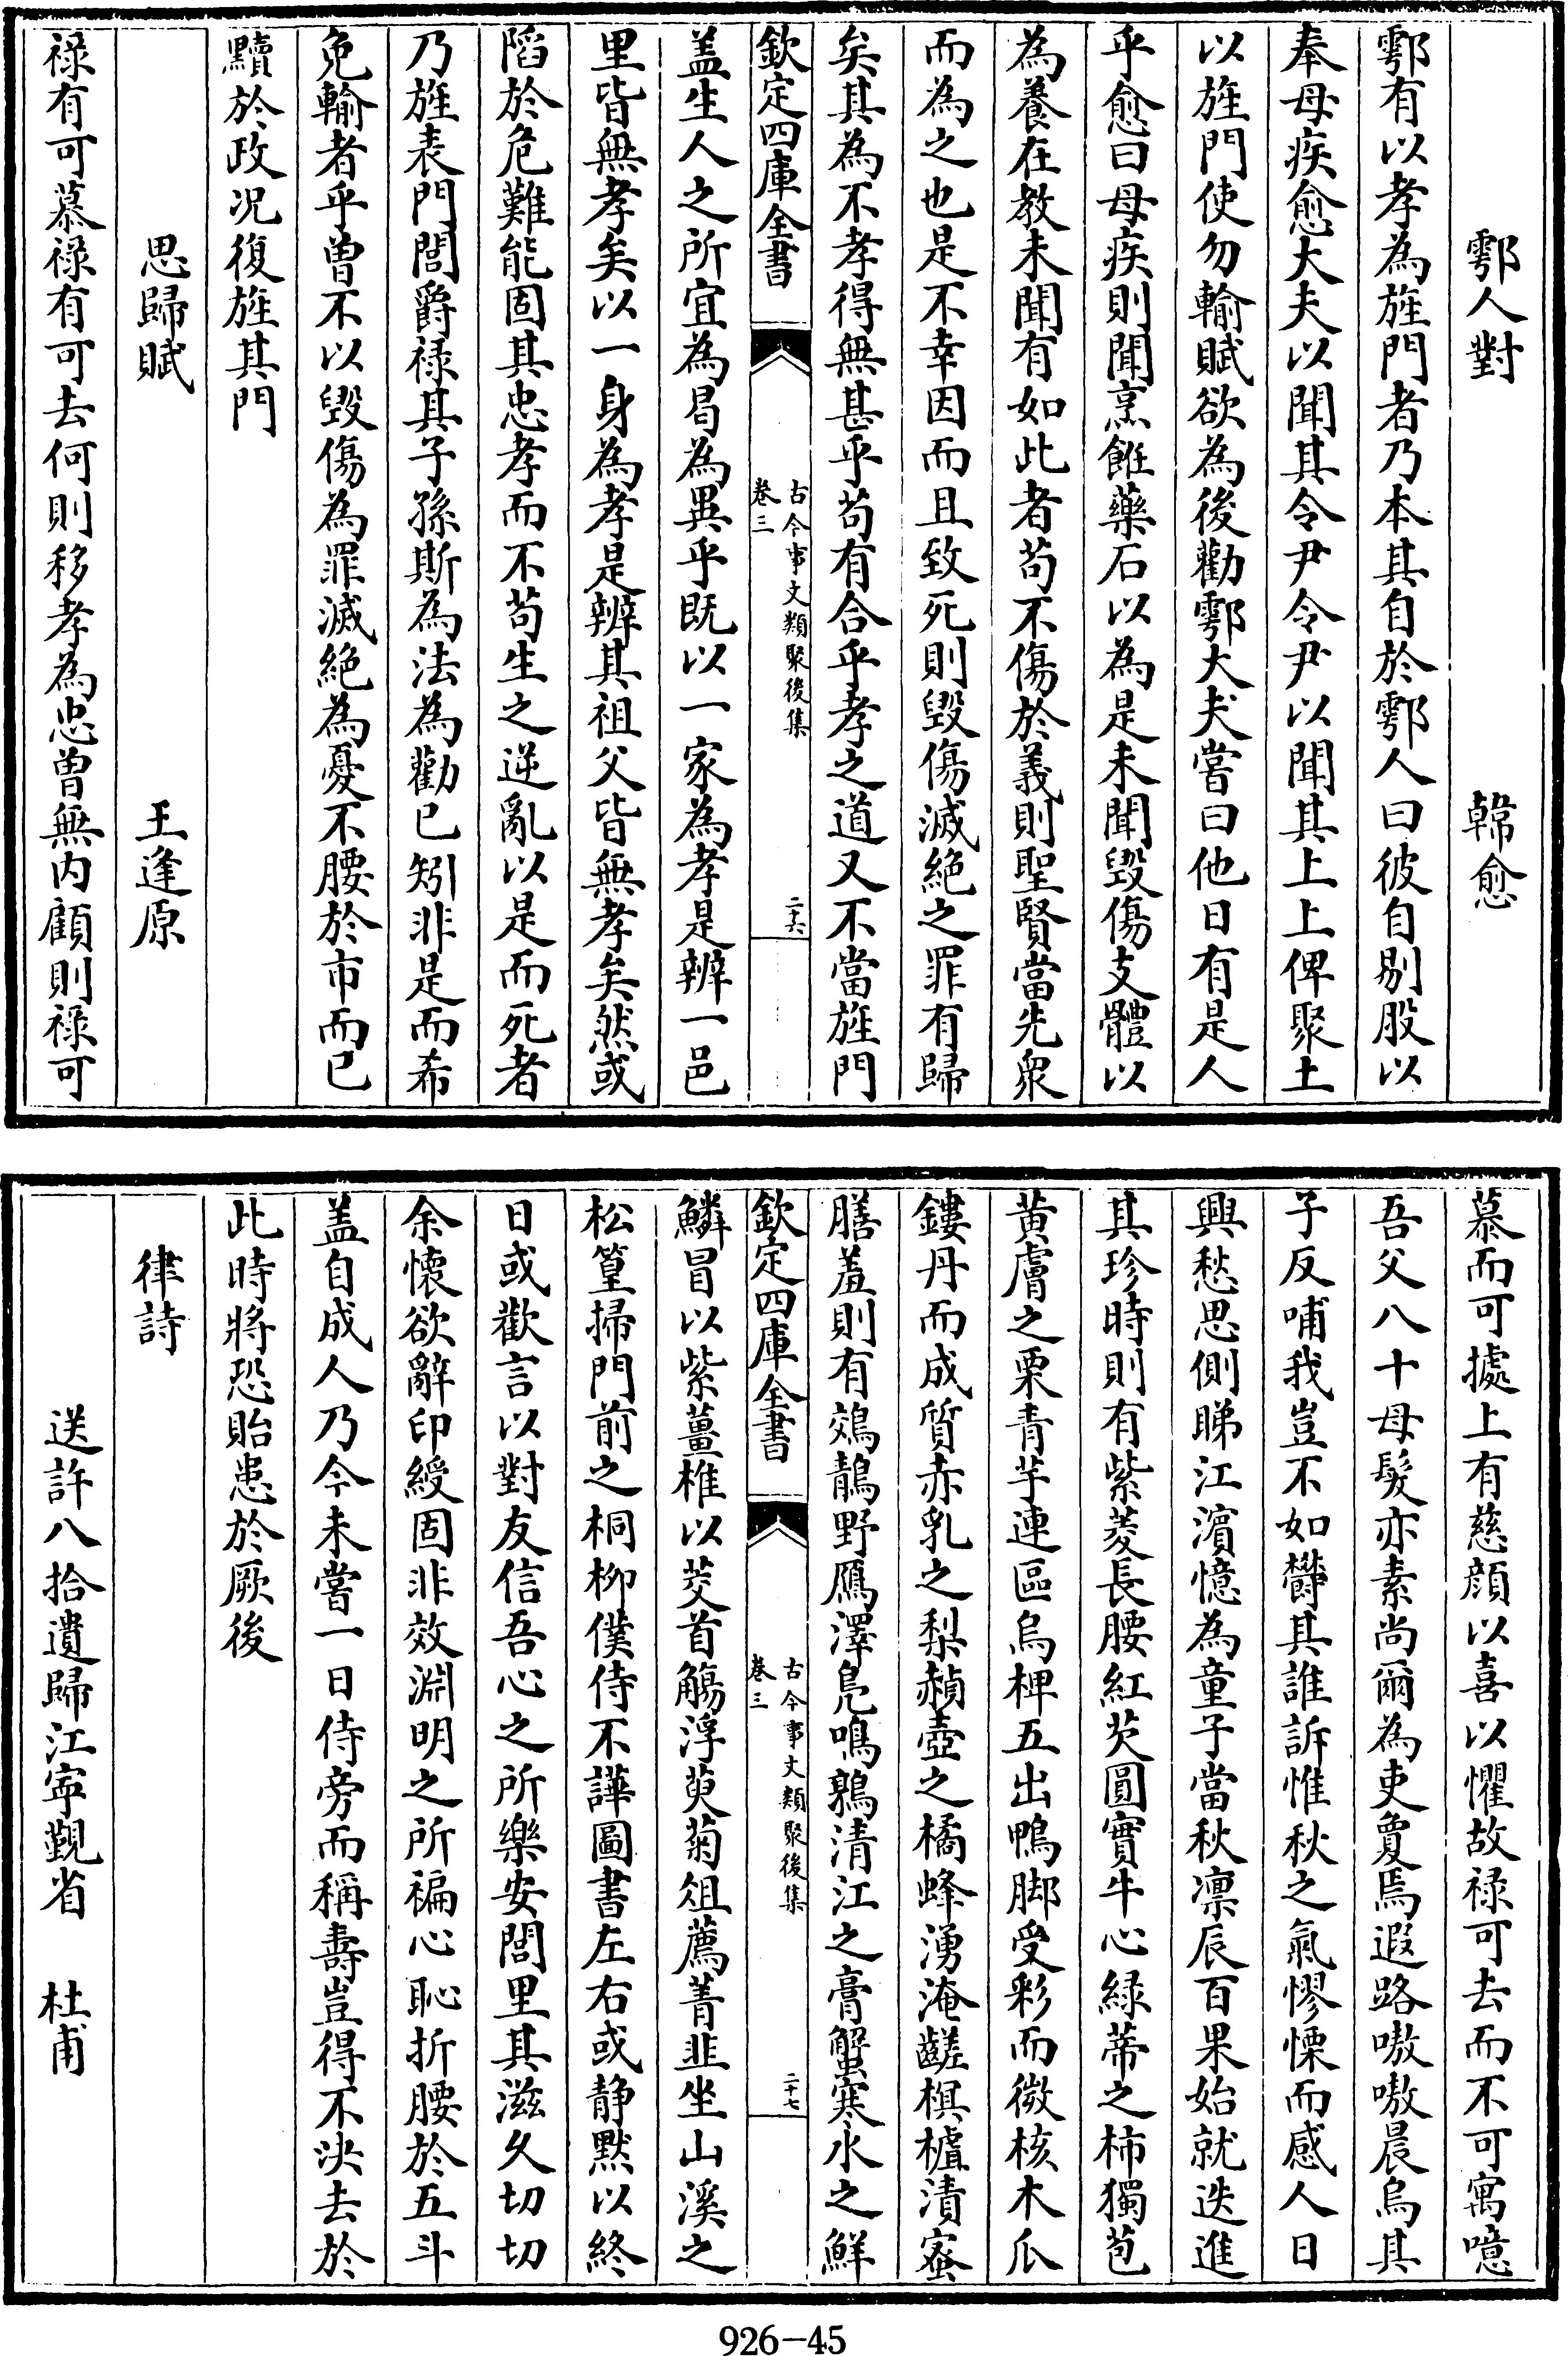 鄠人對　韓愈
鄠有以孝為旌門者乃本其自於鄠人曰彼自剔股以
奉母疾愈大夫以聞其令尹令尹以聞其上上俾聚土
以旌門使勿輸賦欲為後勸鄠大夫嘗曰他日有是人
乎愈曰母疾則聞烹餁藥石以為是未聞毀傷支體以
為養在教未聞有如此者苟不傷於義則聖賢當先衆
而為之也是不幸因而且致死則毀傷滅絶之罪有歸
矣其為不孝得無甚乎苟有合乎孝之道又不當旌門
欽定四庫全書　古今事文類聚後集　卷三　二十六
盖生人之所宜為曷為異乎既以一家為孝是辨一邑
里皆無孝矣以一身為孝是辨其祖父皆無孝矣然或
陷於危難能固其忠孝而不苟生之逆亂以是而死者
乃旌表門閭爵禄其子孫斯為法為勸已矧非是而希
免輸者乎曽不以毀傷為罪滅絶為憂不腰於市而已
黷於政况復旌其門
思歸賦　王逢原
禄有可慕禄有可去何則移孝為忠曽無内顧則禄可
慕而可據上有慈顔以喜以懼故禄可去而不可寓噫
吾父八十母髮亦素尚爾為吏夐焉遐路嗷嗷晨烏其
子反哺我豈不如欝其誰訴惟秋之氣憀慄而感人日
興愁思側睇江濵憶為童子當秋凛辰百果始就迭進
其珍時則有紫菱長腰紅芡圓實牛心緑蒂之柿獨苞
黄膚之栗青芋連區烏椑五出鴨脚受彩而微核木瓜
鏤丹而成質赤乳之梨頳壺之橘蜂湧淹醝榠樝漬蜜
膳羞則有鵁鶄野鴈澤鳧鳴鶉清江之膏蟹寒水之鮮
欽定四庫全書　古今事文類聚後集　卷三　二十七
鱗冒以紫薑椎以茭首觴浮萸菊俎薦菁韮坐山溪之
松篁掃門前之桐柳僕侍不譁圖書左右或静黙以終
日或歡言以對友信吾心之所樂安閭里其滋久切切
余懷欲辭印綬固非效淵明之所褊心恥折腰於五斗
盖自成人乃今未嘗一日侍旁而稱壽豈得不决去於
此時將恐貽患於厥後
律詩
送許八拾遺歸江寜覲省　杜甫
926-45